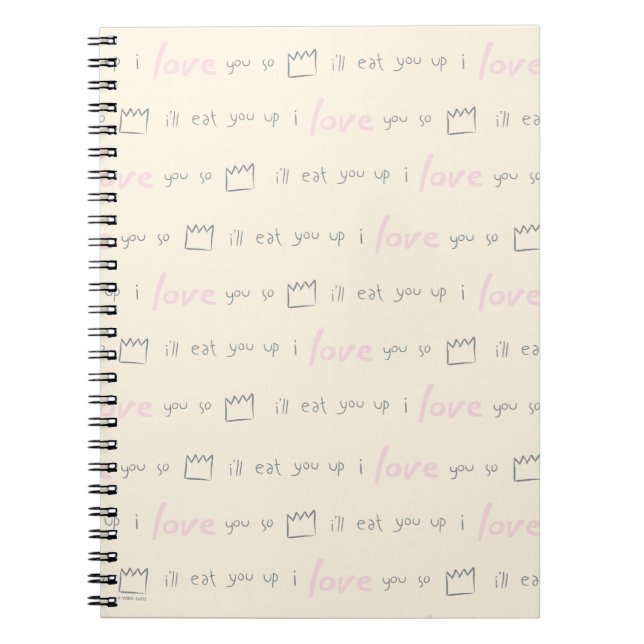 up i love you so i'll eat you up i love
i'll eat you up i love you so i'll ea
love you so i'll eat you up i love you so
you so i'll eat you up i love you so
up i love you so i'll eat you up i love
i'll eat you up i love you so i'll ea
love you so i'll eat you up i love you so
you so i'll eat you up i love you so
up i love you so i'll eat you up i love
i'll eat you up i love you so i'll ea